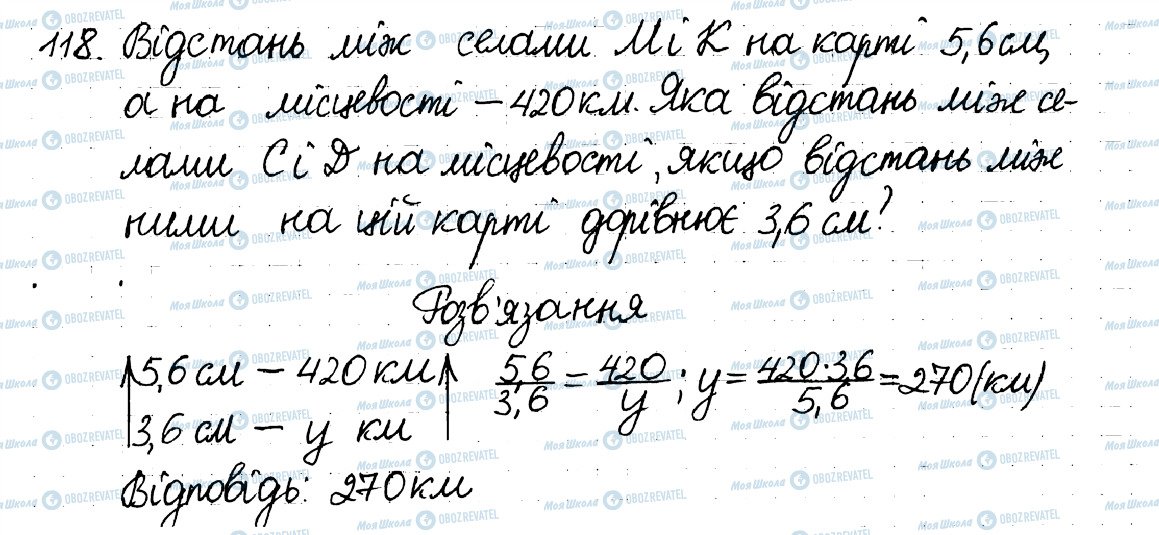 118. Відстань між селами М і К на карті 5,6 см,
а на місцевості – 420 км. Яка відстань між се-
лами С і D на місцевості, якщо відстань між
ними на цій карті дорівнює 3,6 см?
Розв'язання
5,6 см – 420 км
3,6 см – y км
5,6/3,6 = 420/y; y = 420·3,6/5,6 = 270 (км)
Відповідь: 270 км